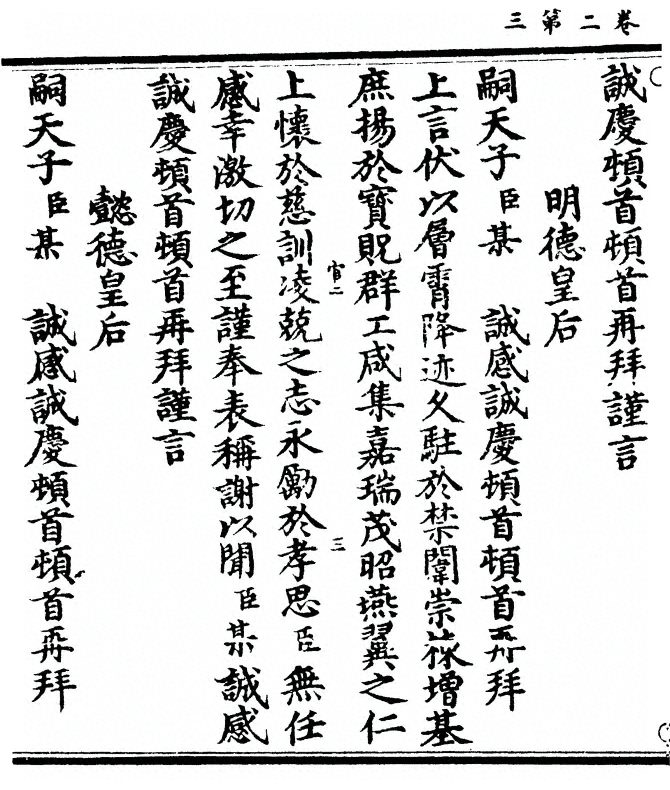 卷第二 三
誠慶頓首頓首再拜謹言
明德皇后
嗣天子臣某 誠感誠慶頓首頓首再拜
上言伏以層霄降迹久駐於禁闈崇祿增基
庶揚於寶貺群工咸集嘉瑞茂昭燕翼之仁
上懷於慈訓凌兢之志永勵於孝思臣無任
感幸激切之至謹奉表稱謝以聞臣某誠感
誠慶頓首頓首再拜謹言
懿德皇后
嗣天子臣某 誠感誠慶頓首頓首再拜
官二
三